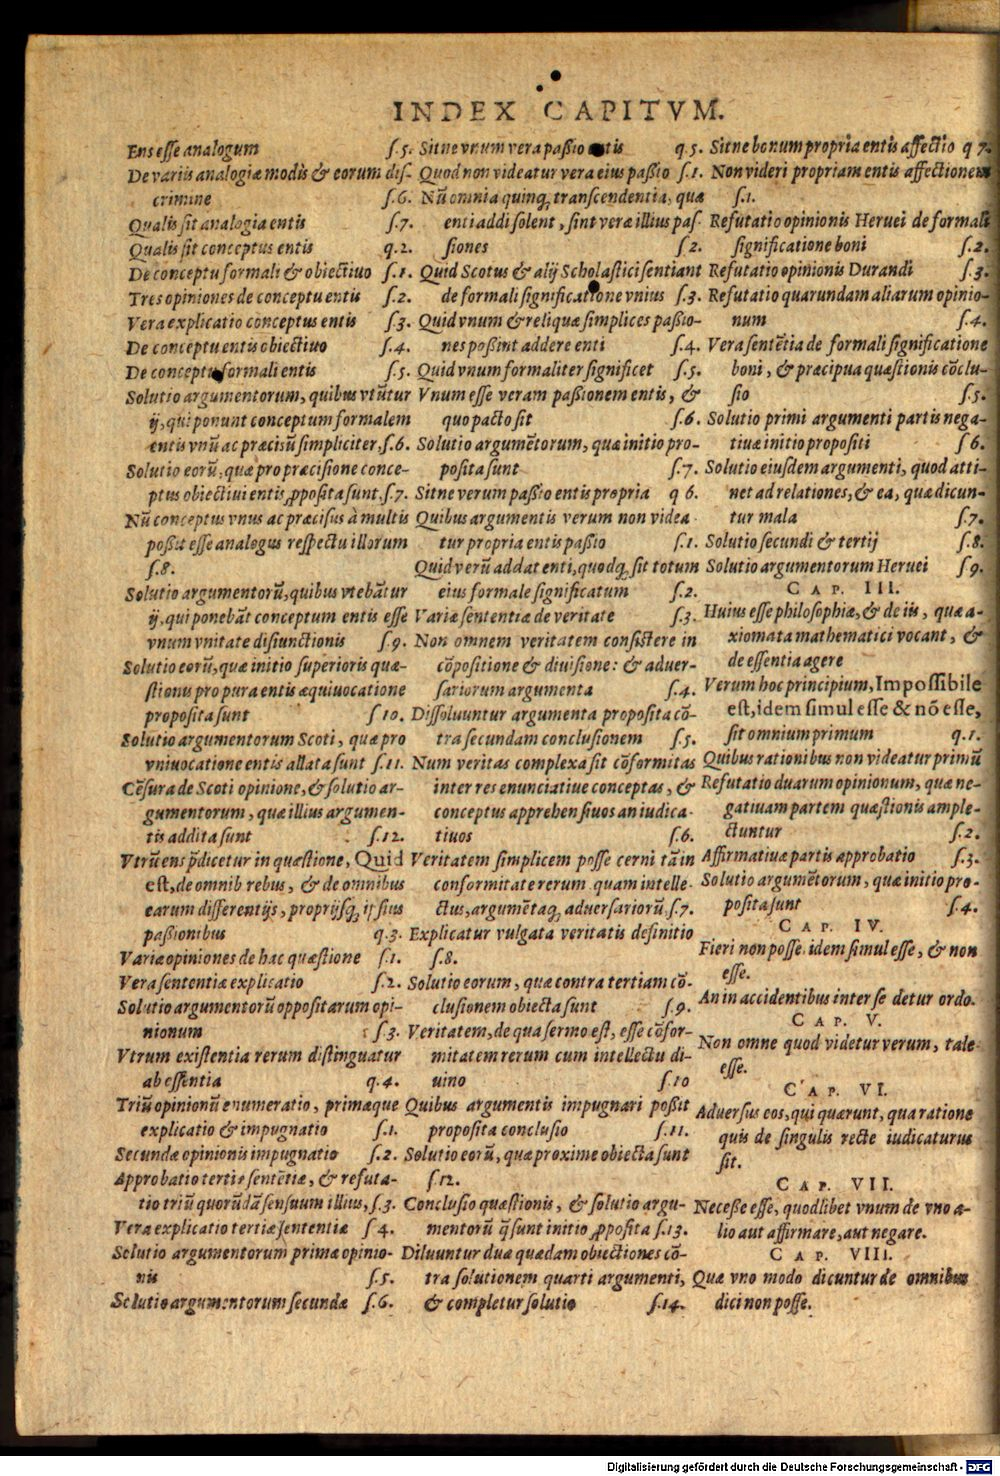 INDEX CAPITVM.
Ens esse analogum ſ.5.
De variis analogiæ modis & eorum diſ-
crimine ſ.6.
Qualis ſit analogia entis ſ.7.
Qualis ſit conceptus entis q.2.
De conceptu formali & obiectiuo ſ.1.
Tres opiniones de conceptu entis ſ.2.
Vera explicatio conceptus entis ſ.3.
De conceptu entis obiectiuo ſ.4.
De conceptu formali entis ſ.5.
Solutio argumentorum, quibus vtūtur
ij, qui ponunt conceptum formalem
entis vnū ac præcisū simpliciter, ſ.6.
Solutio eorū, quæ pro præcisione conce-
ptus obiectiui entis ꝓposita sunt, ſ.7.
Nū conceptus vnus ac præcisus à multis
poßit esse analogus respectu illorum
ſ.8.
Solutio argumentorū, quibus vtebātur
ij, qui ponebāt conceptum entis esse
vnum vnitate disiunctionis ſ.9.
Solutio eorū, quæ initio superioris quæ-
stionis pro pura entis æquiuocatione
proposita sunt ſ 10.
Solutio argumentorum Scoti, quæ pro
vniuocatione entis allata sunt ſ.11.
Cēsura de Scoti opinione, & solutio ar-
gumentorum, quæ illius argumen-
tis addita sunt ſ.12.
Vtrū ens p̄dicetur in quæstione, Quid
est, de omnib rebus, & de omnibus
earum differentijs, proprijsq́; ipsius
paßionibus q.3.
Variæ opiniones de hac quæstione ſ.1.
Vera sententiæ explicatio ſ.2.
Solutio argumentorū oppositarum opi-
nionum ſ.3.
Vtrum existentia rerum distinguatur
ab essentia q.4.
Triū opinionū enumeratio, primæque
explicatio & impugnatio ſ.1.
Secundæ opinionis impugnatio ſ.2.
Approbatio tertiæ sentētiæ, & refuta-
tio triū quorūdā sensuum illius, ſ.3.
Vera explicatio tertiæ sententiæ ſ 4.
Solutio argumentorum primæ opinio-
nis ſ.5.
Solutio argumentorum secundæ ſ.6.
Sitne vnum vera paßio entis q.5.
Quod non videatur vera eius paßio ſ.1.
Nū omnia quinq; transcendentia, quæ
enti addi solent, sint veræ illius pas-
siones ſ 2.
Quid Scotus & alij Scholastici sentiant
de formali significatione vnius ſ.3.
Quid vnum & reliquæ simplices paßio-
nes poßint addere enti ſ.4.
Quid vnum formaliter significet ſ.5.
Vnum esse veram paßionem entis, &
quo pacto sit ſ.6.
Solutio argumētorum, quæ initio pro-
posita sunt ſ.7.
Sitne verum paßio entis propria q 6.
Quibus argumentis verum non videa-
tur propria entis paßio ſ.1.
Quid verū addat enti, quodq; sit totum
eius formale significatum ſ.2.
Variæ sententiæ de veritate ſ.3.
Non omnem veritatem consistere in
cōpositione & diuisione: & aduer-
sariorum argumenta ſ.4.
Dissoluuntur argumenta proposita cō-
tra secundam conclusionem ſ.5.
Num veritas complexa sit cōformitas
inter res enunciatiue conceptas, &
conceptus apprehensiuos an iudica-
tiuos ſ.6.
Veritatem simplicem posse cerni tā in
conformitate rerum quam intelle-
ctus, argumētaq; aduersariorū, ſ.7.
Explicatur vulgata veritatis definitio
ſ.8.
Solutio eorum, quæ contra tertiam cō-
clusionem obiecta sunt ſ.9.
Veritatem, de qua sermo est, esse cōfor-
mitatem rerum cum intellectu di-
uino ſ.10
Quibus argumentis impugnari poßit
proposita conclusio ſ.11.
Solutio eorū, quæ proxime obiecta sunt
ſ.12.
Conclusio quæstionis, & solutio argu-
mentorū q̄ sunt initio ꝓposita ſ.13.
Diluuntur duæ quædam obiectiones cō-
tra solutionem quarti argumenti,
& completur solutio ſ.14.
Sitne bonum propria entis affectio q 7.
Non videri propriam entis affectionem
ſ.1.
Refutatio opinionis Heruei de formali
significatione boni ſ.2.
Refutatio opinionis Durandi ſ.3.
Refutatio quarundam aliarum opinio-
num ſ.4.
Vera sentētia de formali significatione
boni, & præcipuæ quæstionis cōclu-
sio ſ.5.
Solutio primi argumenti partis nega-
tiuæ initio propositi ſ 6.
Solutio eiusdem argumenti, quod atti-
net ad relationes, & ea, quæ dicun-
tur mala ſ.7.
Solutio secundi & tertij ſ.8.
Solutio argumentorum Heruei ſ.9.
CAP. III.
Huius esse philosophiæ, & de iis, quæ a-
xiomata mathematici vocant, &
de essentia agere
Verum hoc principium, Impossibile
est, idem simul esse & nō esse,
sit omnium primum q.1.
Quibus rationibus non videatur primū
Refutatio duarum opinionum, quæ ne-
gatiuam partem quæstionis ample-
ctuntur ſ.2.
Affirmatiuæ partis approbatio ſ.3.
Solutio argumētorum, quæ initio pro-
posita sunt ſ.4.
CAP. IV.
Fieri non posse idem simul esse, & non
esse.
An in accidentibus inter se detur ordo.
CAP. V.
Non omne quod videtur verum, tale
esse.
CAP. VI.
Aduersus eos, qui quærunt, qua ratione
quis de singulis recte iudicaturus
sit.
CAP. VII.
Neceße esse, quodlibet vnum de vno a-
lio aut affirmare, aut negare.
CAP. VIII.
Quæ vno modo dicuntur de omnibus
dici non posse.
Digitalisierung gefördert durch die Deutsche Forschungsgemeinschaft - DFG